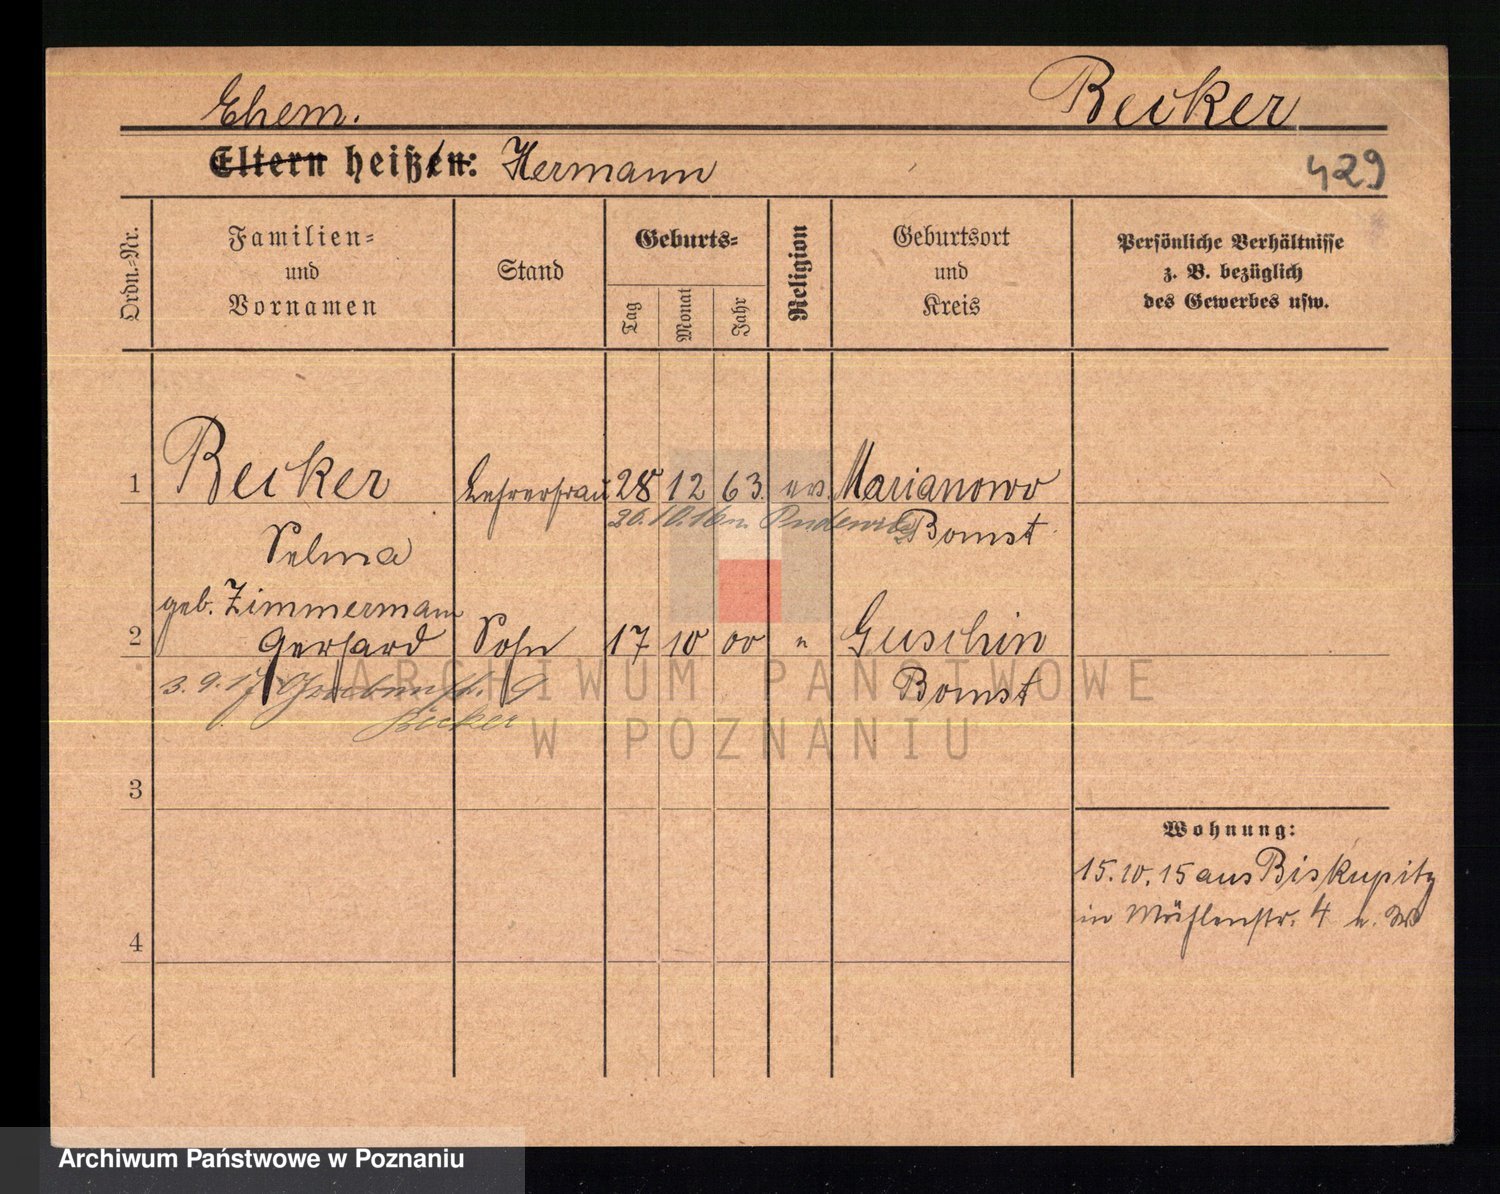 Ehem. Becker
Eltern heißen: Hermann 429
Ordn.-Nr. Familien- und Vornamen Stand Geburts- Tag Monat Jahr Religion Geburtsort und Kreis Persönliche Verhältnisse z. B. bezüglich des Gewerbes usw.
1 Becker Lehrerfrau 28 12 63. ev. Marianowo
20.10.16 n. Pudewitz Bomst
Selma
geb. Zimmermann
2 Gerhard Sohn 17 10 00 " Guschin
3.9.17 9 Bomst
Becker
ARCHIWUM PAŃSTWOWE
W POZNANIU
3
Wohnung:
15.10.15 aus Biskupitz
in Mühlenstr. 4
4
Archiwum Państwowe w Poznaniu